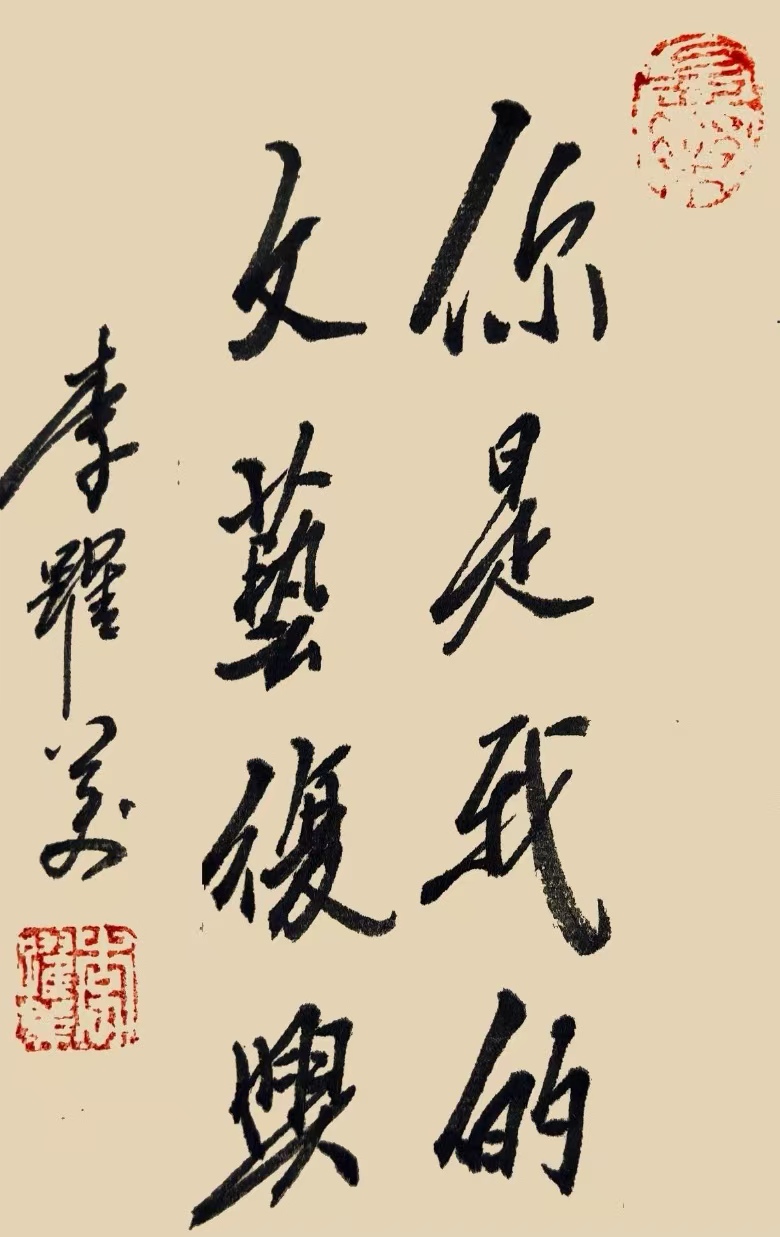 你是我的
文藝復興
李躍